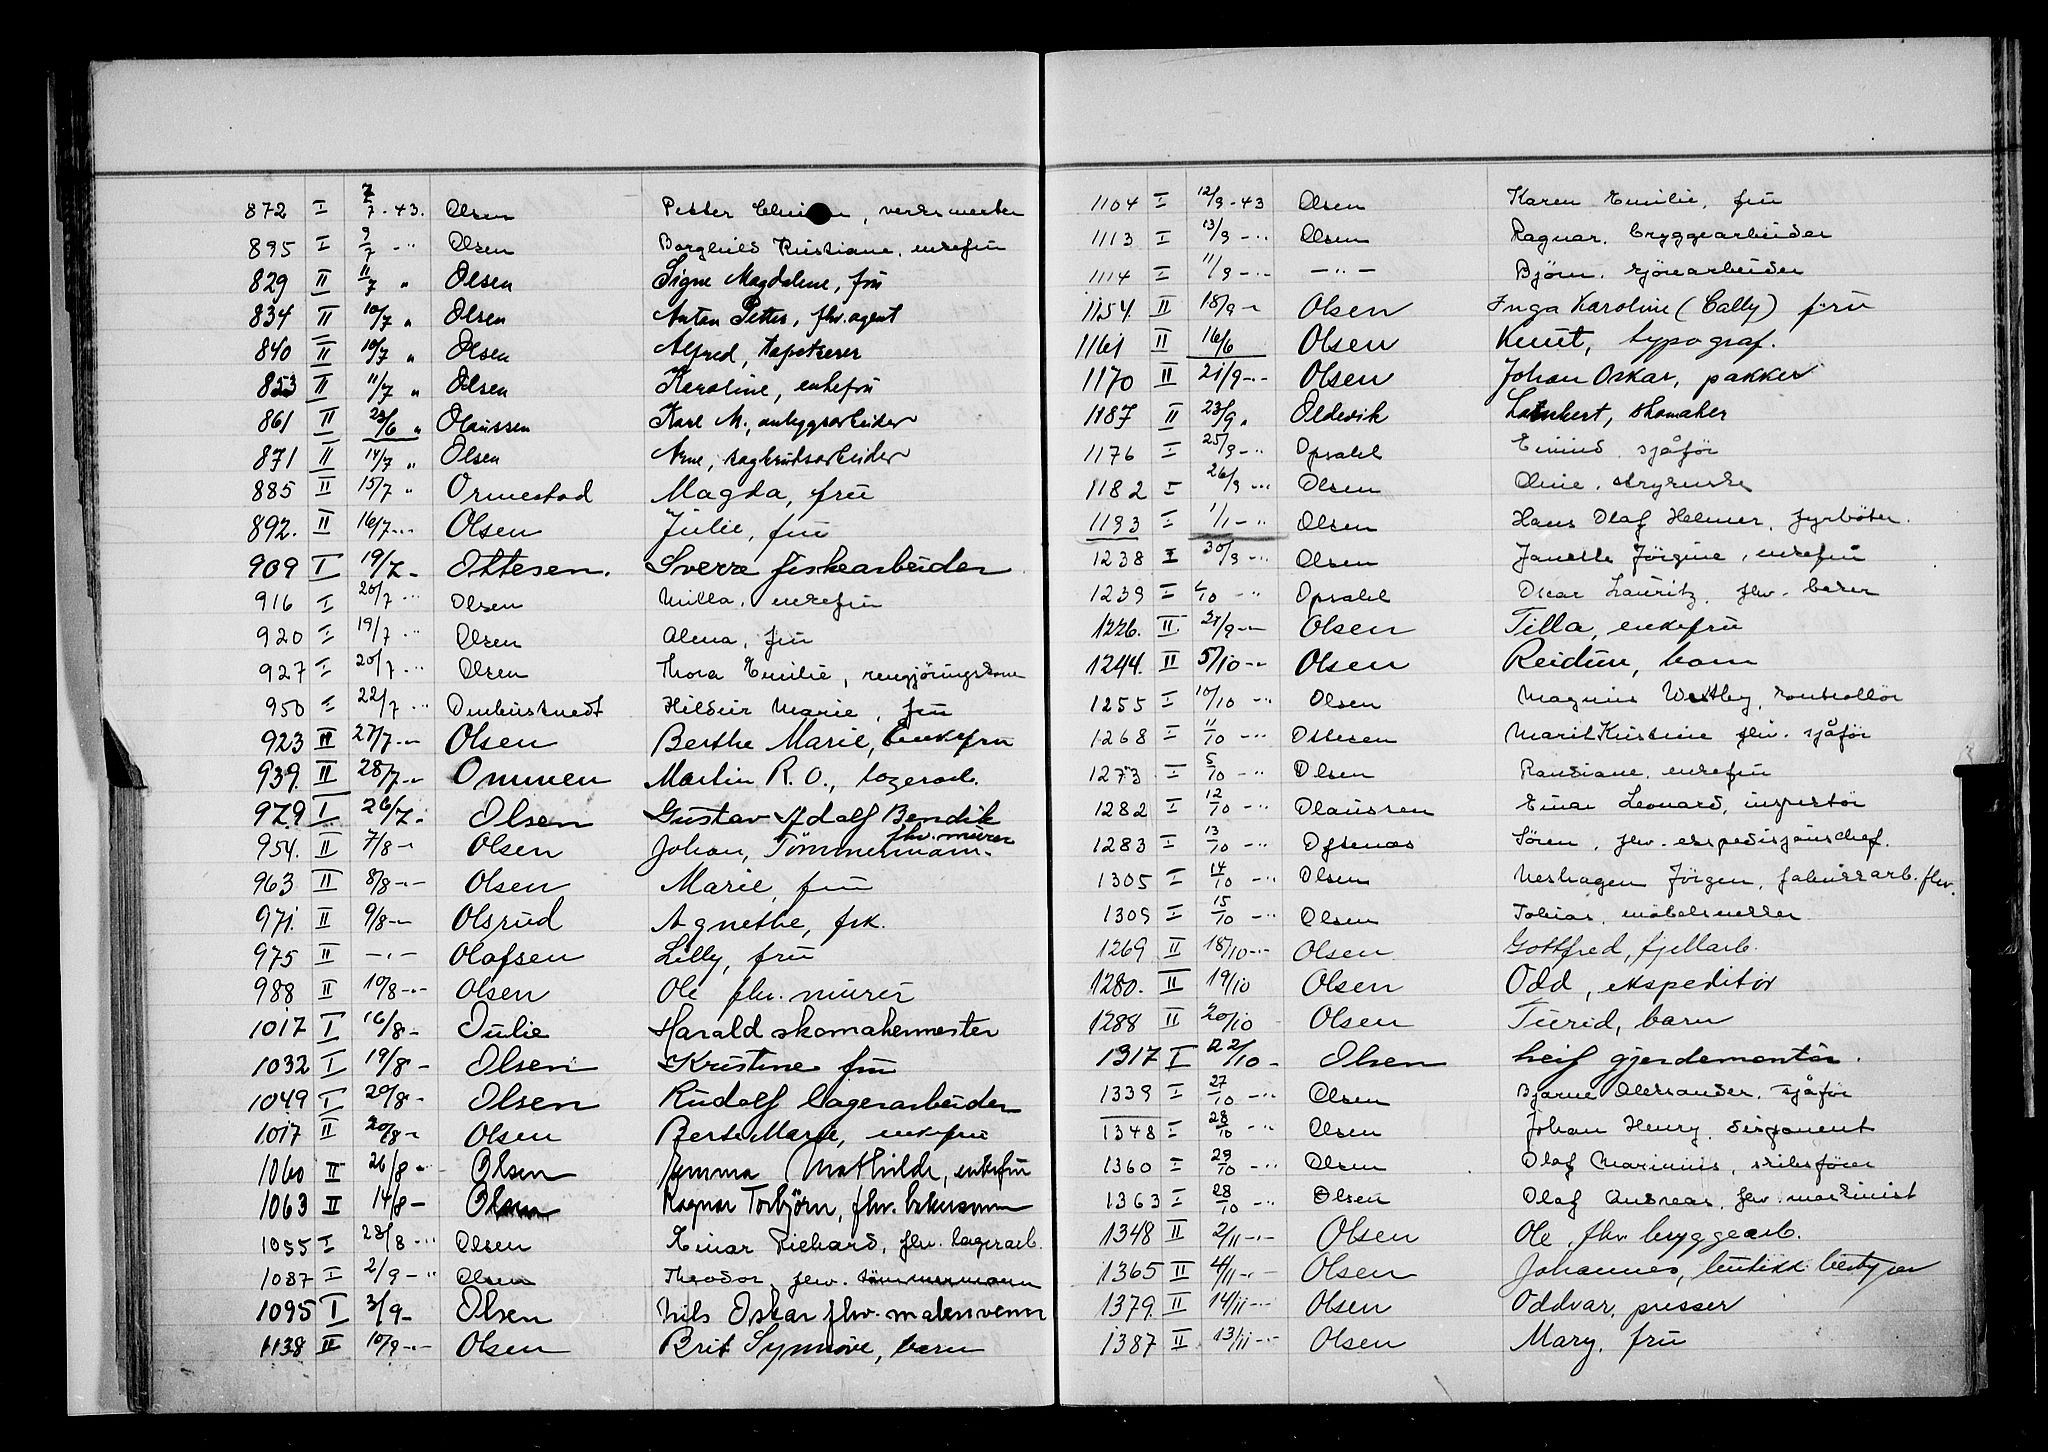 872 I 7/7-43. Olsen Petter, verksmester
895 I 9/7 -" Olsen Borghild Kristiane, enkefru
829 II 11/7 " Olsen Signe Magdalene, fru
834 II 10/7 " Olsen Anton Petter, fhv. agent
840 II 10/7 " Olsen Alfred, tapetserer
853 II 11/7 " Olsen Karoline, enkefru
861 II 23/6 " Olaussen Karl M., anleggsarbeider
871 II 14/7 " Olsen Arne, sagbruksarbeider
885 II 15/7 " Ormestad Magda, fru
892. II 16/7 -"- Olsen Julie, fru
909 I 19/7 - Ottesen. Sverre fiskearbeider
916 I 20/7 -" Olsen Milla, enkefru
920 I 19/7 -" Olsen Alma, fru
927 I 20/7 -" Olsen Thora Emilie, rengjöringskone
950 I 22/7 -" Hildur Marie, fru
923 II 27/7 -"- Olsen Berthe Marie, Enkefru
939. II 28/7 -"- Ommen Martin R. O., lagerarb.
979 I 26/7 - Olsen Gustav Adolf Bendik
fhv. murer
954. II 7/8 -"- Olsen Johan, Tömmermann.
963 II 8/8 -"- Olsen Marie, fru
971. II 9/8 -"- Olsrud Agnethe, frk.
975 II -"- Olafsen Lilly, fru
988 II 10/8 -"- Olsen Ole fhv. murer
1017 I 16/8 - Julie Harald skomakermester
1032 I 19/8 - Olsen Kristine fru
1049 I 20/8 - Olsen Rudolf lagerarbeider
1017 II 20/8 -"- Olsen Berte Marie, enkefru
1060 II 26/8 -"- Olsen Emma Mathilde, enkefru
1063 II 14/8 - Olsen Ragnar Torbjörn, fhv.
1055 I 28/8 -" Olsen Einar Richard, fhv. lagerarb.
1087 I 2/9 -" Olsen Theodor, fhv. tömmermann
1095 I 3/9 - Olsen Nils Oskar fhv. malersvenn
1138 II 10/9 -"- Olsen Brit Synnöve, barn
1104 I 12/9-43 Olsen Karen Emilie, fru
1113 I 13/9 -" Olsen Ragnar, bryggearbeider
1114 I 11/9 -" -"- Björn, sjöarbeider
1154. II 18/9 -"- Olsen Inga Karoline (Cally) fru
1161 II 16/6 Olsen Knut, typograf.
1170 II 21/9 -"- Olsen Johan Oskar, pakker
1187 II 23/9 " Oldervik Lambert, skomaker
1176 I 25/9 -" Opsahl Eivind, sjåför
1182 I 26/9 -" Olsen Oline, strykerske
1193 I 1/1 -" Olsen Hans Olaf Helmer, fyrböter.
1238 I 30/9 -" Olsen Janette Jörgine, enkefru
1239 I 4/10 -" Opsahl Oscar Lauritz, fhv. baker
1226. II 29/9 -"- Olsen Tilla, enkefru
1244. II 5/10 -"- Olsen Reidun, barn
1255 I 10/10 -" Olsen Magnus Westby, kontrollör
1268 I 11/10 -" Ottesen Marit Kristine fhv. sjåför
1273 I 5/10 -" Olsen Randiane, enkefru
1282 I 12/10 -" Olaussen Einar Leonard, inspektör
1283 I 13/10 -" Oftenæs Sören, fhv. ekspedisjonschef.
1305 I 14/10 -" Olsen Neshagen Jörgen, fabrikkarb. fhv.
1309 I 15/10 -" Olsen Tobias, möbelsnekker
1269 II 18/10 -"- Olsen Gottfred, fjellarb.
1280. II 19/10 Olsen Odd, ekspeditör
1288 II 20/10 Olsen Turid, barn
1317 I 22/10 - Olsen Leif gjerdemontör.
1339 I 27/10 -" Olsen Bjarne Aleksander, sjåför
1348 I 28/10 -" Olsen Johan Henry, disponent
1360 I 29/10 -" Olsen Olaf Marinius, skibsförer
1363 I 28/10 -" Olsen Olaf Andreas, fhv. maskinist
1348 II 2/11 -"- Olsen Ole, fhv bryggearb.
1365 II 4/11 -"- Olsen Johannes, butikkbestyrer
1379. II 14/11 -"- Olsen Oddvar, presser
1387 II 13/11 -"- Olsen Mary, fru